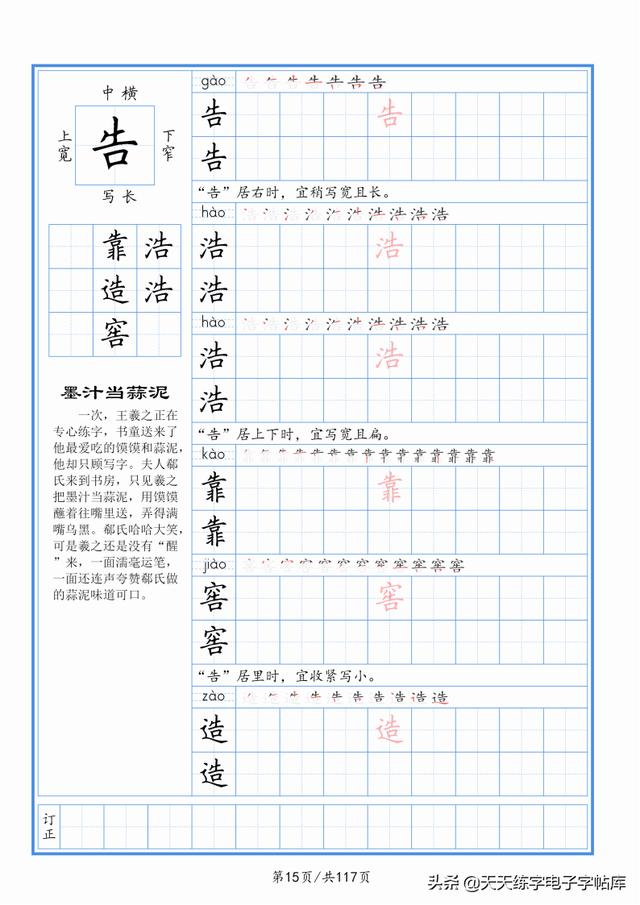 中横
上宽
告
下窄
写长
靠浩
造浩
窖
墨汁当蒜泥
一次，王羲之正在
专心练字，书童送来了
他最爱吃的馍馍和蒜泥，
他却只顾写字。夫人郗
氏来到书房，只见羲之
把墨汁当蒜泥，用馍馍
蘸着往嘴里送，弄得满
嘴乌黑。郗氏哈哈大笑，
可是羲之还是没有“醒
”来，一面濡毫运笔，
一面还连声夸赞郗氏做
的蒜泥味道可口。
gào
告 告
告
“告”居右时，宜稍写宽且长。
hào
浩 浩
浩
hào
浩 浩
浩
“告”居上下时，宜写宽且扁。
kào
靠 靠
靠
jiào
窖 窖
窖
“告”居里时，宜收紧写小。
zào
造 造
造
订正
第15页/共117页
头条 @天天练字电子字帖库